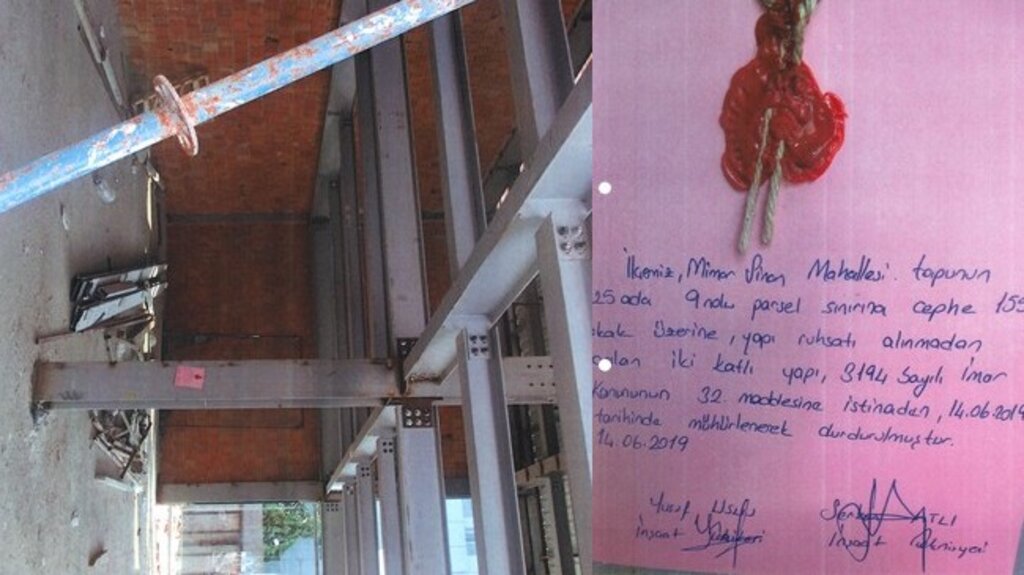 İlçemiz, Mimar Sinan Mahallesi. tapunun
25 ada 9 nolu parsel sınırına cephe 155
üzerine, yapı ruhsatı alınmadan
iki katlı yapı, 3194 Sayılı İmar
Kanununun 32. maddesine istinaden, 14.06.2019
tarihinde mühürlenerek durdurulmuştur.
14.06.2019
Yusuf
İnşaat
Serkan ATLI
İnşaat Teknisyeni